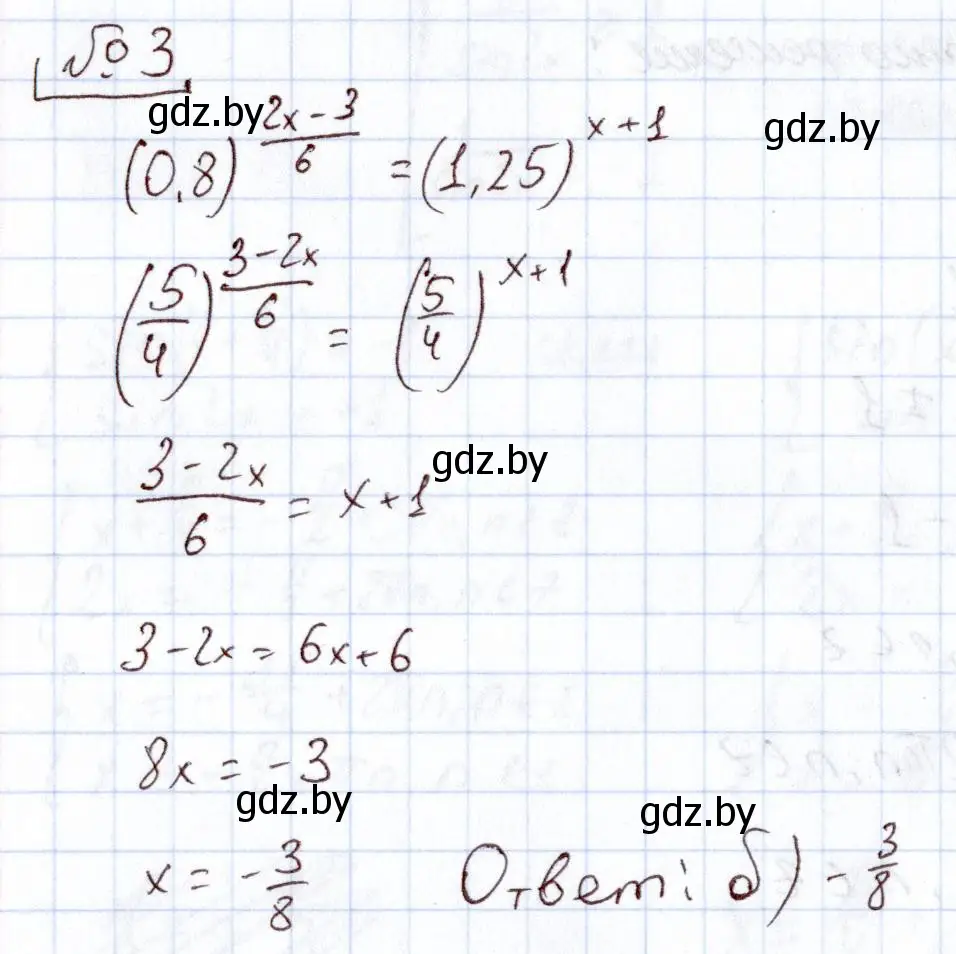 № 3
gdz.by gdz.by
(0,8)^((2x-3)/6) = (1,25)^(x+1)
(5/4)^((3-2x)/6) = (5/4)^(x+1)
gdz.by
(3-2x)/6 = x+1
3-2x = 6x+6
8x = -3
gdz.by gdz.by
x = -3/8 Ответ: б) -3/8